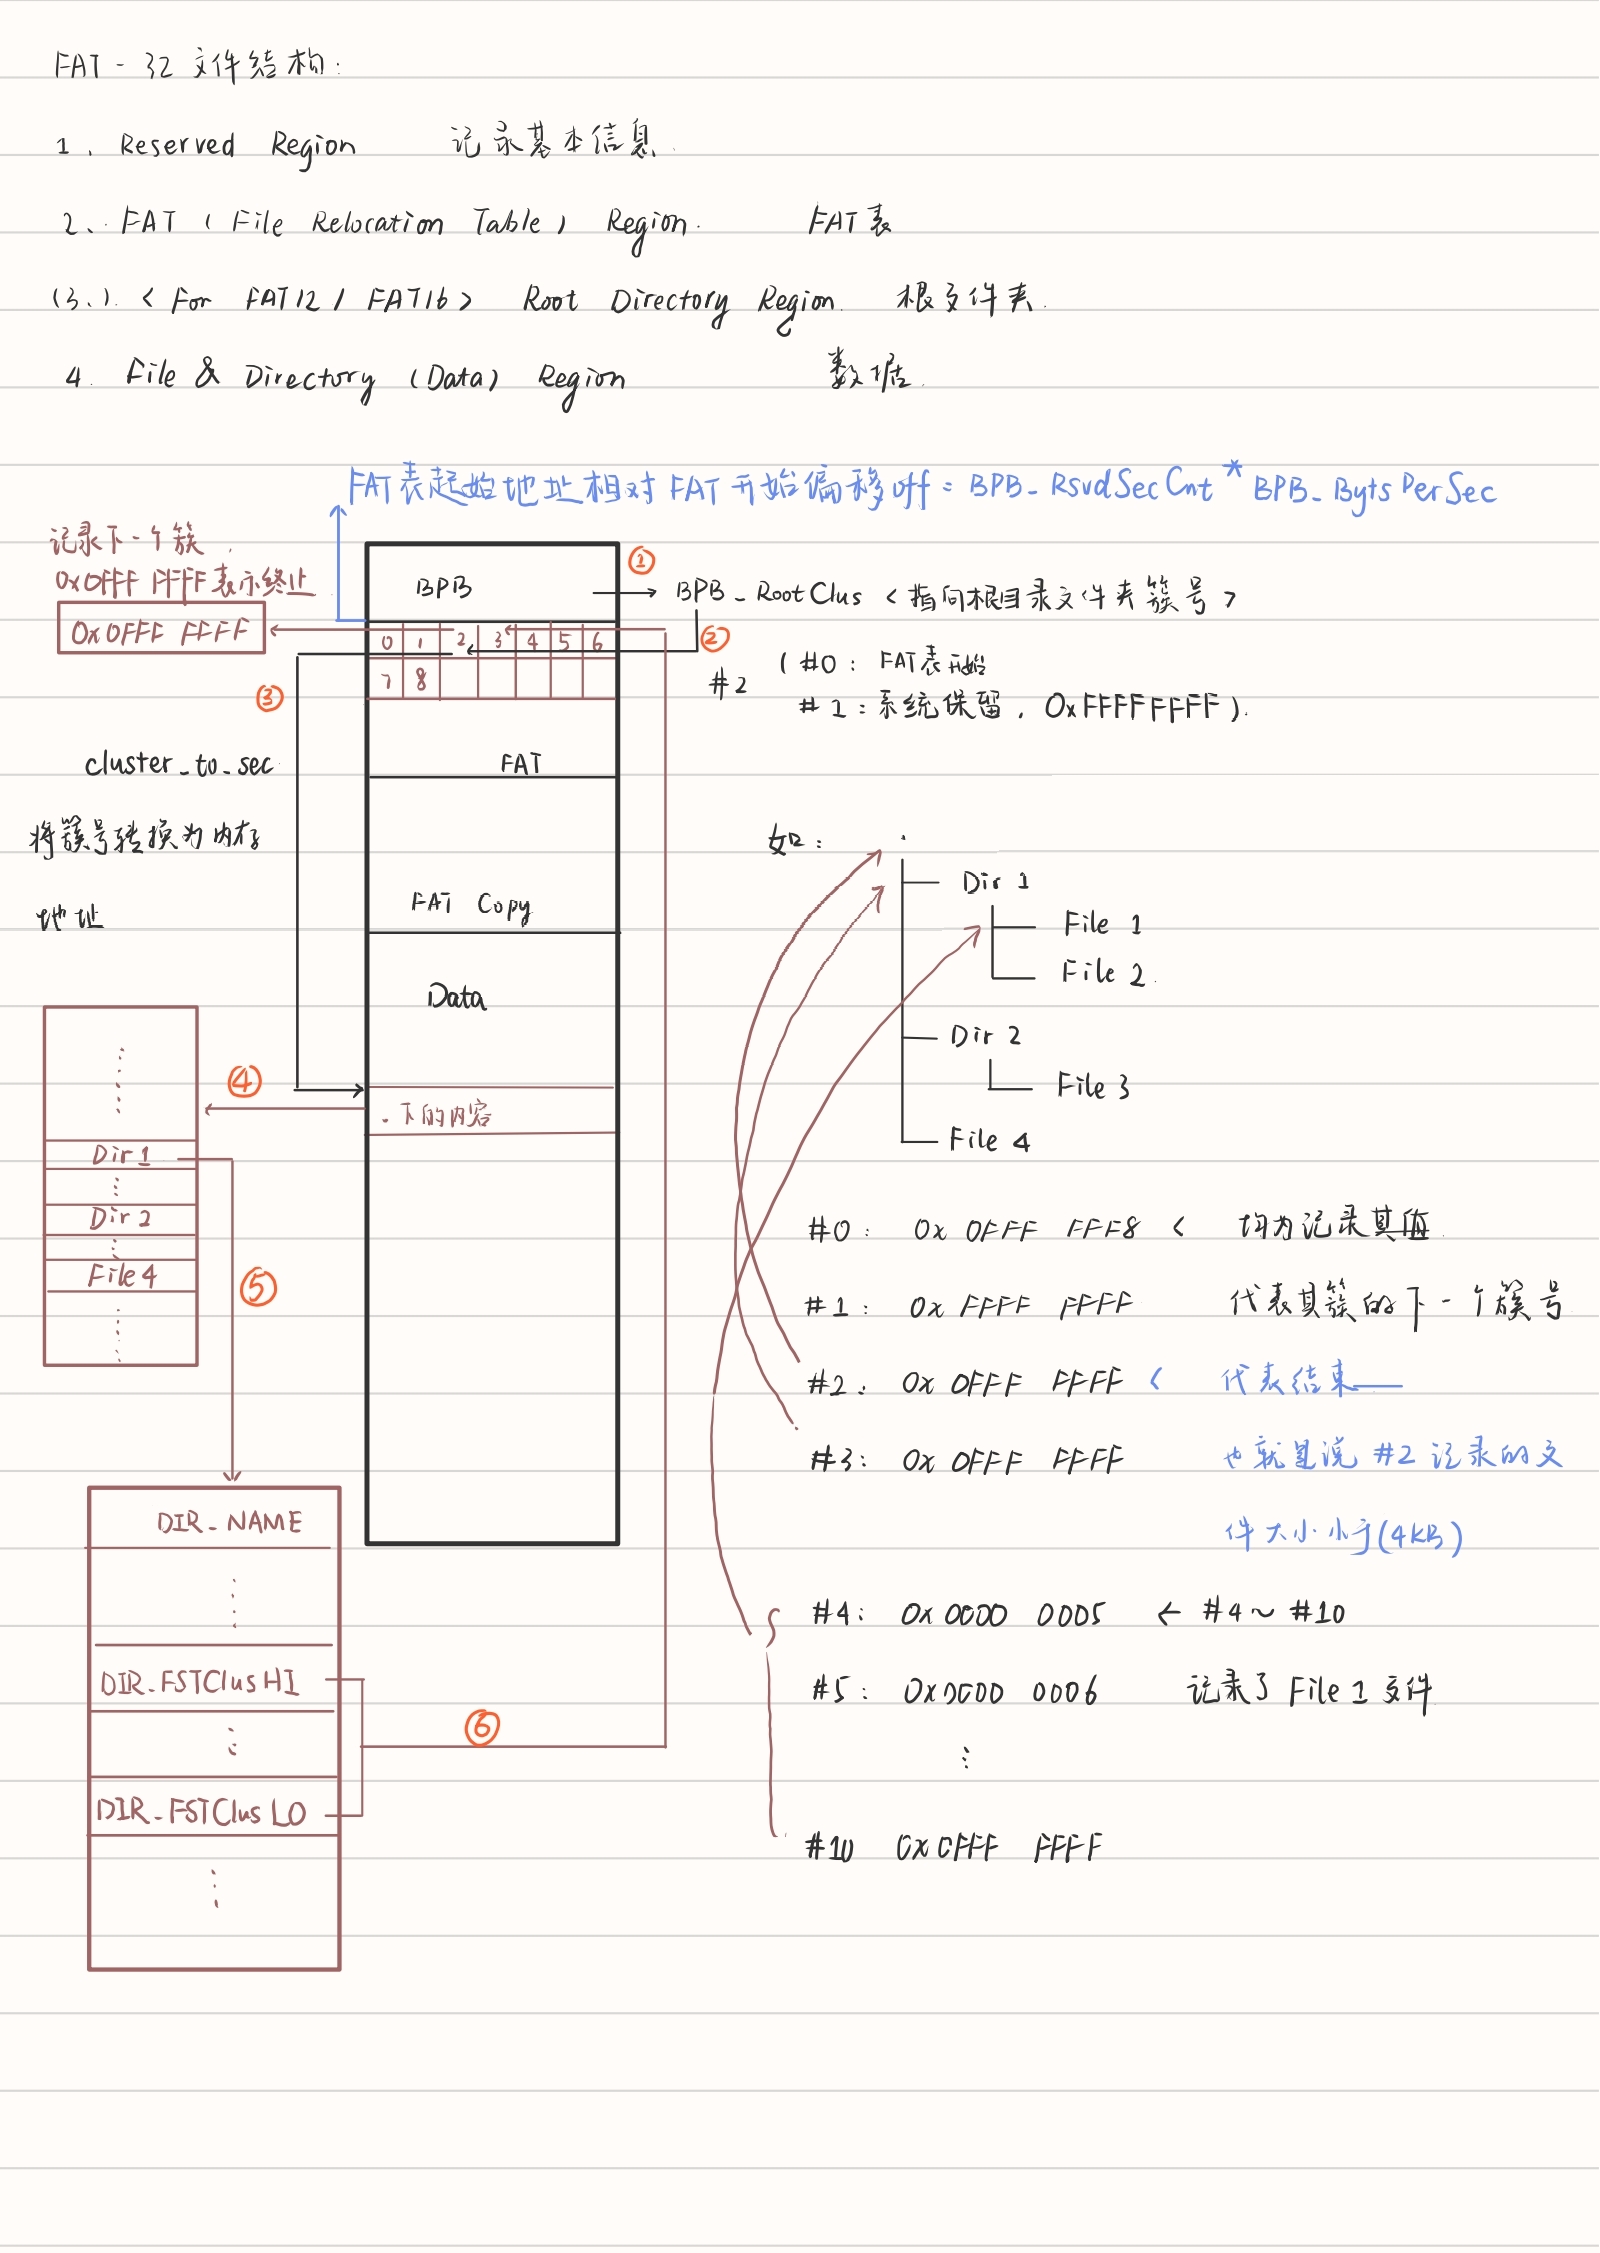 FAT - 32 文件结构:
1、Reserved Region 记录基本信息.
2、FAT (File Relocation Table) Region. FAT表
(3.). <For FAT12 / FAT16> Root Directory Region. 根文件夹.
4. File & Directory (Data) Region 数据.
FAT表起始地址相对 FAT 开始偏移off = BPB_RsvdSecCnt * BPB_BytsPerSec
记录下一个簇.
0x0FFF FFFF表示终止.
0x0FFF FFFF
BPB
①
BPB_RootClus <指向根目录文件夹簇号>
0 1 2 3 4 5 6
7 8
②
#2
(#0: FAT表开始
#1:系统保留, 0xFFFFFFFF).
③
cluster_to_sec
将簇号转换为内存
地址
FAT
FAT Copy
Data
.下的内容
如: .
Dir 1
File 1
File 2.
Dir 2
File 3
File 4
④
Dir 1
Dir 2
File 4
⑤
DIR_NAME
DIR_FSTClusHI
DIR_FSTClusLO
⑥
#0: 0x 0FFF FFF8 < 均为记录其值.
#1: 0x FFFF FFFF 代表其簇的下一个簇号
#2: 0x 0FFF FFFF < 代表结束——
#3: 0x 0FFF FFFF 也就是说 #2 记录的文
件大小小于(4KB)
#4: 0x 0000 0005 ← #4~#10
#5: 0x0000 0006 记录了 File 1 文件
⋮
#10 0x0FFF FFFF